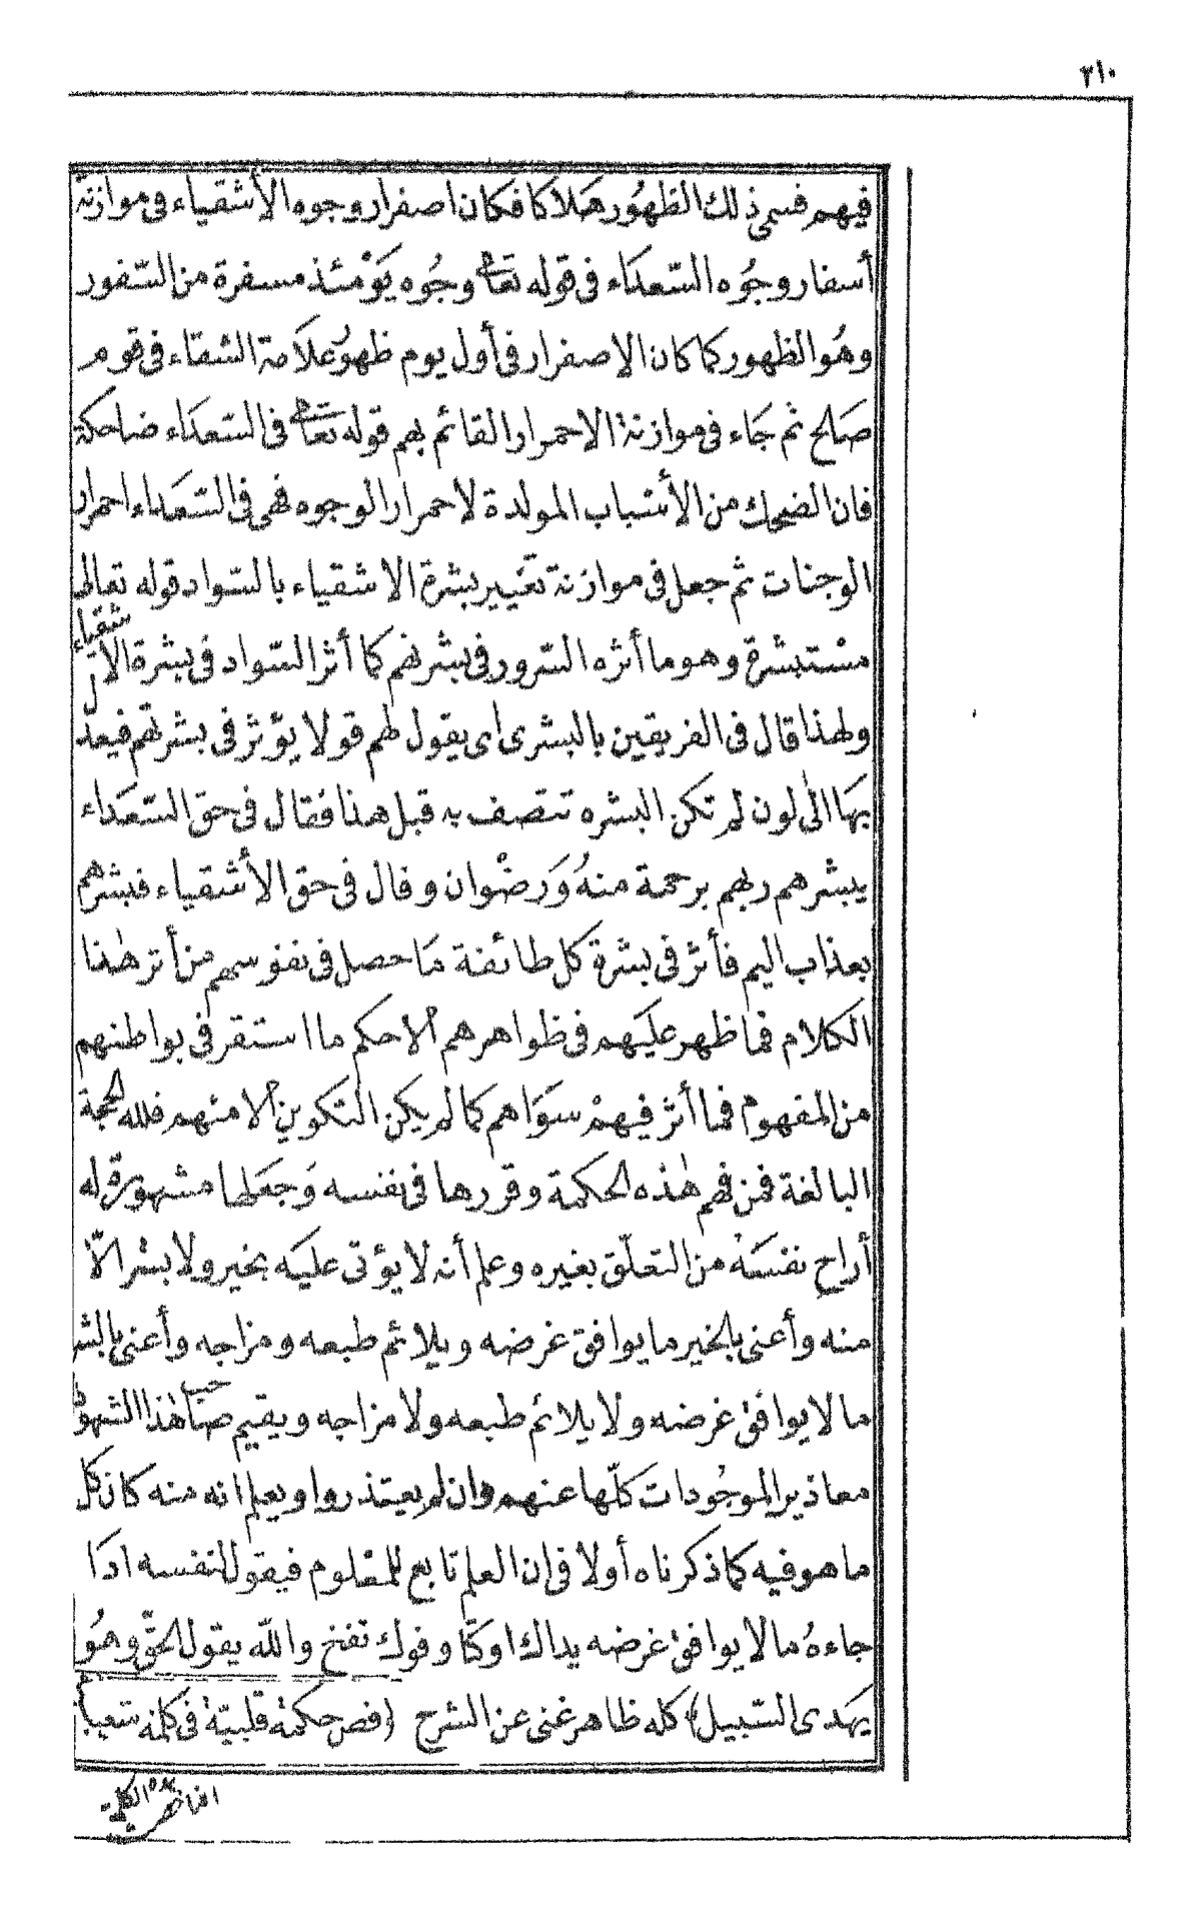 ٣١٠
فيهم فسمى ذلك الظهور هلاكا فكان اصفرار وجوه الأشقياء فى موازنة
أسفار وجوه السّعداء فى قوله تعالى وجوه يَوْمئذ مسفرة من السّفور
وهُو الظهور كما كان الإصفرار فى أول يوم ظهور علامة الشقاء فى قوم
صَالح ثم جَاء فى موازنة الاحمرار القائم بهم قوله تعالى فى السّعداء ضاحكة
فان الضحك من الأسباب المولدة لاحمرار الوجوه فهى فى السّعداء احمرار
الوجنات ثم جعل فى موازنة تغيير بشرة الاشقياء بالسّواد قوله تعالى
مسْتبشرة وهو ما أثره السّرور فى بشرتهم كما أثر السّواد فى بشرة الاشقياء
ولهذا قال فى الفريقين بالبشرى اى يقول لهم قولا يؤثر فى بشرتهم فيعدل
بهَا الى لون لم تكن البشره تتصف به قبل هذا فقال فى حق السّعداء
يبشرهم ربهم برحمة منهُ وَرضْوان وقال فى حق الأشقياء فبشرهم
بعذاب اليم فأثر فى بشرة كل طائفة مَا حصل فى نفوسهم من أثر هٰذا
الكلام فما ظهر عليهم فى ظواهرهم الا حكم ما استقر فى بواطنهم
من المفهوم فما أثر فيهمْ سوَاهم كما لم يكن التكوين الا منهم فلله الحجة
البالغة فمن فهم هٰذه الحكمة وقررها فى نفسه وَجعَلها مشهورة له
أراح نفسَهُ من التعلّق بغيره وعلم أنه لا يؤتى عليَه بخير ولا بشر الّا
منه وأعنى بالخير ما يوافق غرضه ويلائم طبعه ومزاجه وأعنى بالشر
ما لا يوافق غرضه ولا يلائم طبعه ولا مزاجه ويقيم صاحب هٰذا الشهود
معاذير الموجُودات كلّها عنهم وان لم يعتذروا ويعلم انه منه كان كل
ما هو فيه كما ذكرناه أولا فى ان العلم تابع للمعْلوم فيقول لنفسه اذا
جاءهُ ما لا يوافق غرضه يداك اوكتا وفوك نفخ والله يقول الحقّ وهُو
يَهدى السّبيل) كله ظاهر غنى عن الشرح (فص حكمة قلبيّة فى كلمة شعيبية
انما خصت هذه الكلمة